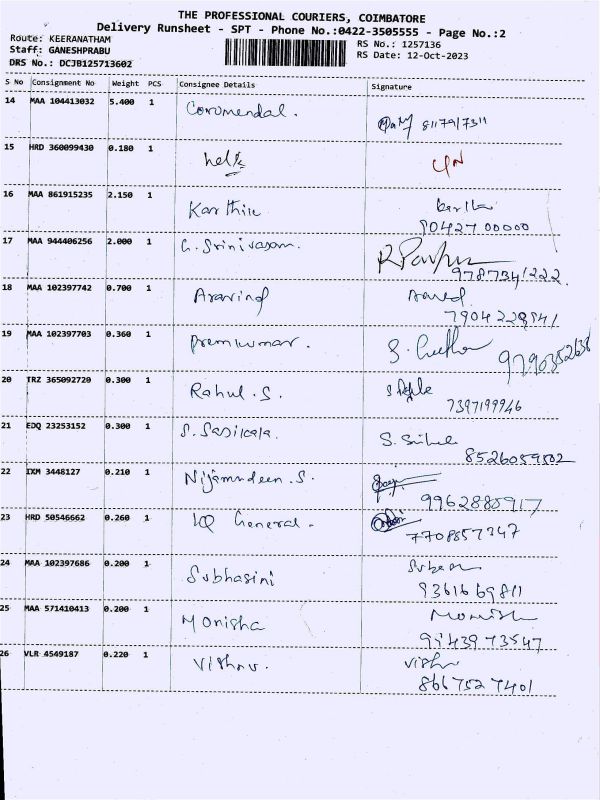 THE PROFESSIONAL COURIERS, COIMBATORE
Delivery Runsheet - SPT - Phone No.:0422-3505555 - Page No.:2
Route: KEERANATHAM
Staff: GANESHPRABU
DRS No.: DCJB125713602
RS No.: 1257136
RS Date: 12-Oct-2023
S No Consignment No Weight PCS Consignee Details Signature
14 MAA 104413032 5.400 1 Coromendal.
8117917311
15 HRD 360099430 0.180 1
16 MAA 861915235 2.150 1 Karthik
90427 00000
17 MAA 944406256 2.000 1 G. Srinivasan.
9787341222
18 MAA 102397742 0.700 1 Aravind
7904228941
19 MAA 102397703 0.360 1 Premkumar.
S. Geetha
9790352638
20 TRZ 365092720 0.300 1 Rahul. S.
7397199946
21 EDQ 23253152 0.300 1 S. Sasikala.
8526059502
22 IXM 3448127 0.210 1 Nijamudeen. S.
9962885917
23 HRD 50546662 0.260 1 General.
7708857347
24 MAA 102397686 0.200 1 Subhasini
9361669811
25 MAA 571410413 0.200 1 Monisha
Monish
9943973547
26 VLR 4549187 0.220 1 Vishnu.
8667527401